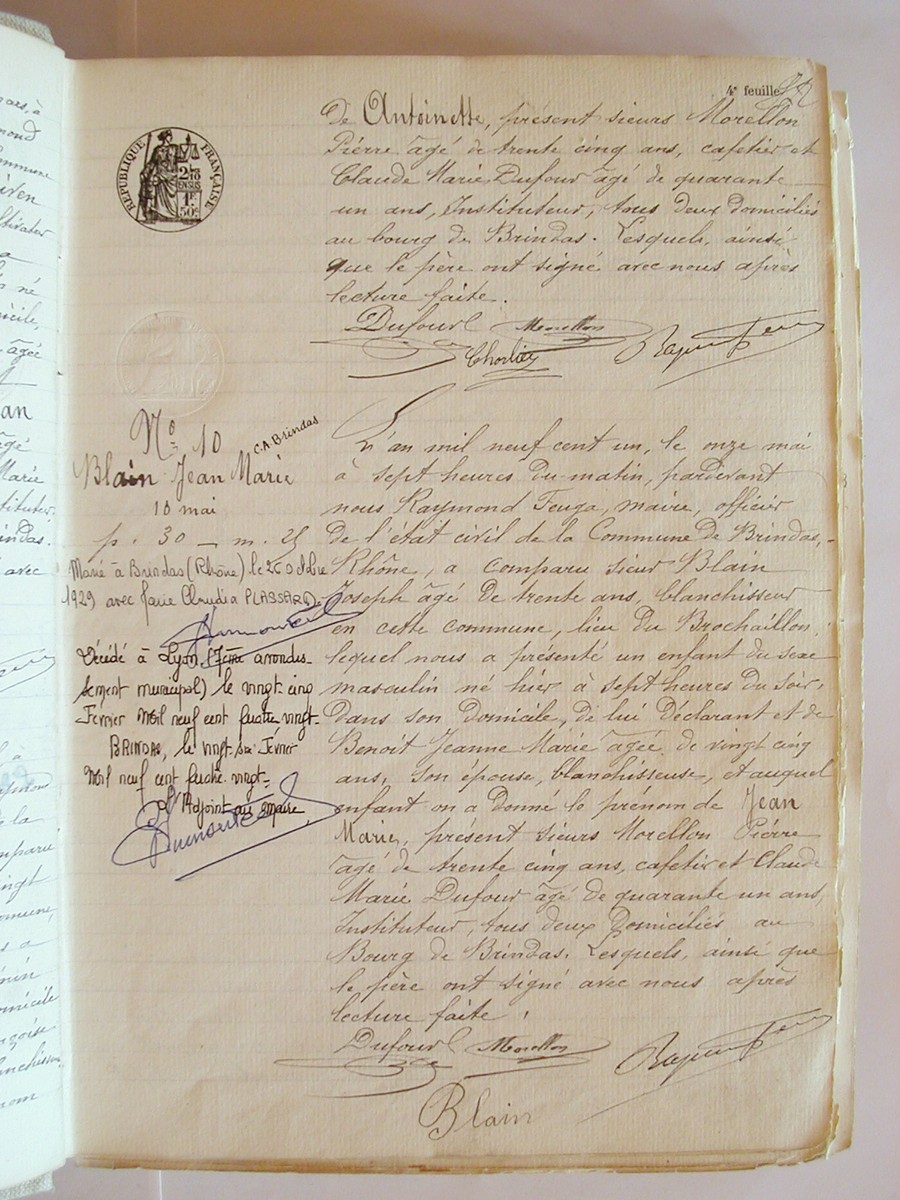 4e feuille
RÉPUBLIQUE FRANÇAISE
2/10
EN SUS
1F
50c
de Antoinette, présent sieurs Morellon
Pierre âgé de trente cinq ans, cafetier et
Claude Marie Dufour âgé de quarante
un ans, Instituteur, tous deux domiciliés
au bourg de Brindas. Lesquels, ainsi
que le père ont signé avec nous après
lecture faite.
Dufour Morellon
No 10
C.A. Brindas
Blain Jean Marie
10 mai
p. 30 — m. 25
Marié à Brindas (Rhône) le 26 Octobre
1929 avec Claudia PLASSARD
Décédé à Lyon (7ème arrondis-
sement municipal) le vingt cinq
Février Mil neuf cent quatre vingt-
BRINDAS, le vingt six Février
Mil neuf cent quatre-vingt-
L'Adjoint au maire,
L'an mil neuf cent un, le onze mai
à sept heures du matin, pardevant
nous Raymond Feuga, maire, officier
de l'état civil de la Commune de Brindas,
Rhône, a comparu sieur Blain
Joseph âgé de trente ans, blanchisseur
en cette commune, lieu du Brochaillon,
lequel nous a présenté un enfant du sexe
masculin né hier à sept heures du soir,
dans son domicile, de lui déclarant et de
Benoit Jeanne Marie âgée de vingt cinq
ans, son épouse, blanchisseuse, et auquel
enfant on a donné le prénom de Jean
Marie, présent sieurs Morellon Pierre
âgé de trente cinq ans, cafetier et Claude
Marie Dufour âgé de quarante un ans,
Instituteur, tous deux domiciliés au
Bourg de Brindas. Lesquels, ainsi que
le père ont signé avec nous après
lecture faite.
Dufour Morellon
Blain